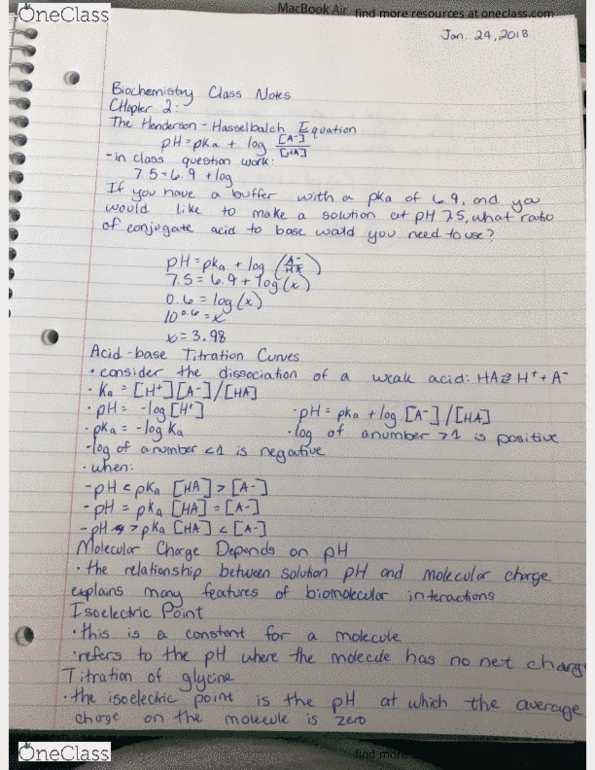 OneClass
MacBook Air find more resources at oneclass.com
Jan. 24, 2018
Biochemistry Class Notes
Chapter 2:
The Henderson-Hasselbalch Equation
pH=pKa + log [A-]/[HA]
-in class question work:
7.5=6.9 +log
If you have a buffer with a pKa of 6.9, and you
would like to make a solution at pH 7.5, what ratio
of conjugate acid to base would you need to use?
pH=pKa + log (A-/HA)
7.5=6.9+log(x)
0.6=log(x)
10^0.6=x
x=3.98
Acid-base Titration Curves
• consider the dissociation of a weak acid: HA⇌H⁺+A⁻
• Ka = [H+][A-]/[HA]
• pH= -log[H+] • pH= pka +log [A-]/[HA]
• pKa = -log Ka • log of a number >1 is positive
• log of a number <1 is negative
• when:
-pH < pKa [HA] > [A-]
-pH = pKa [HA] = [A-]
-pH > pKa [HA] < [A-]
Molecular Charge Depends on pH
• the relationship between solution pH and molecular charge
explains many features of biomolecular interactions
Isoelectric Point
• this is a constant for a molecule
• refers to the pH where the molecule has no net charg
Titration of glycine
• the isoelectric point is the pH at which the average
charge on the molecule is zero
OneClass
find more